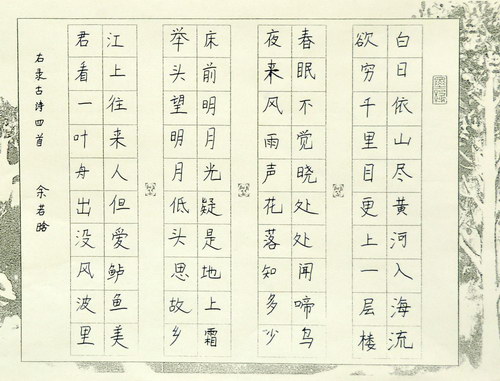 白日依山尽黄河入海流
欲穷千里目更上一层楼
春眠不觉晓处处闻啼鸟
夜来风雨声花落知多少
床前明月光疑是地上霜
举头望明月低头思故乡
江上往来人但爱鲈鱼美
君看一叶舟出没风波里
右录古诗四首 余若晗